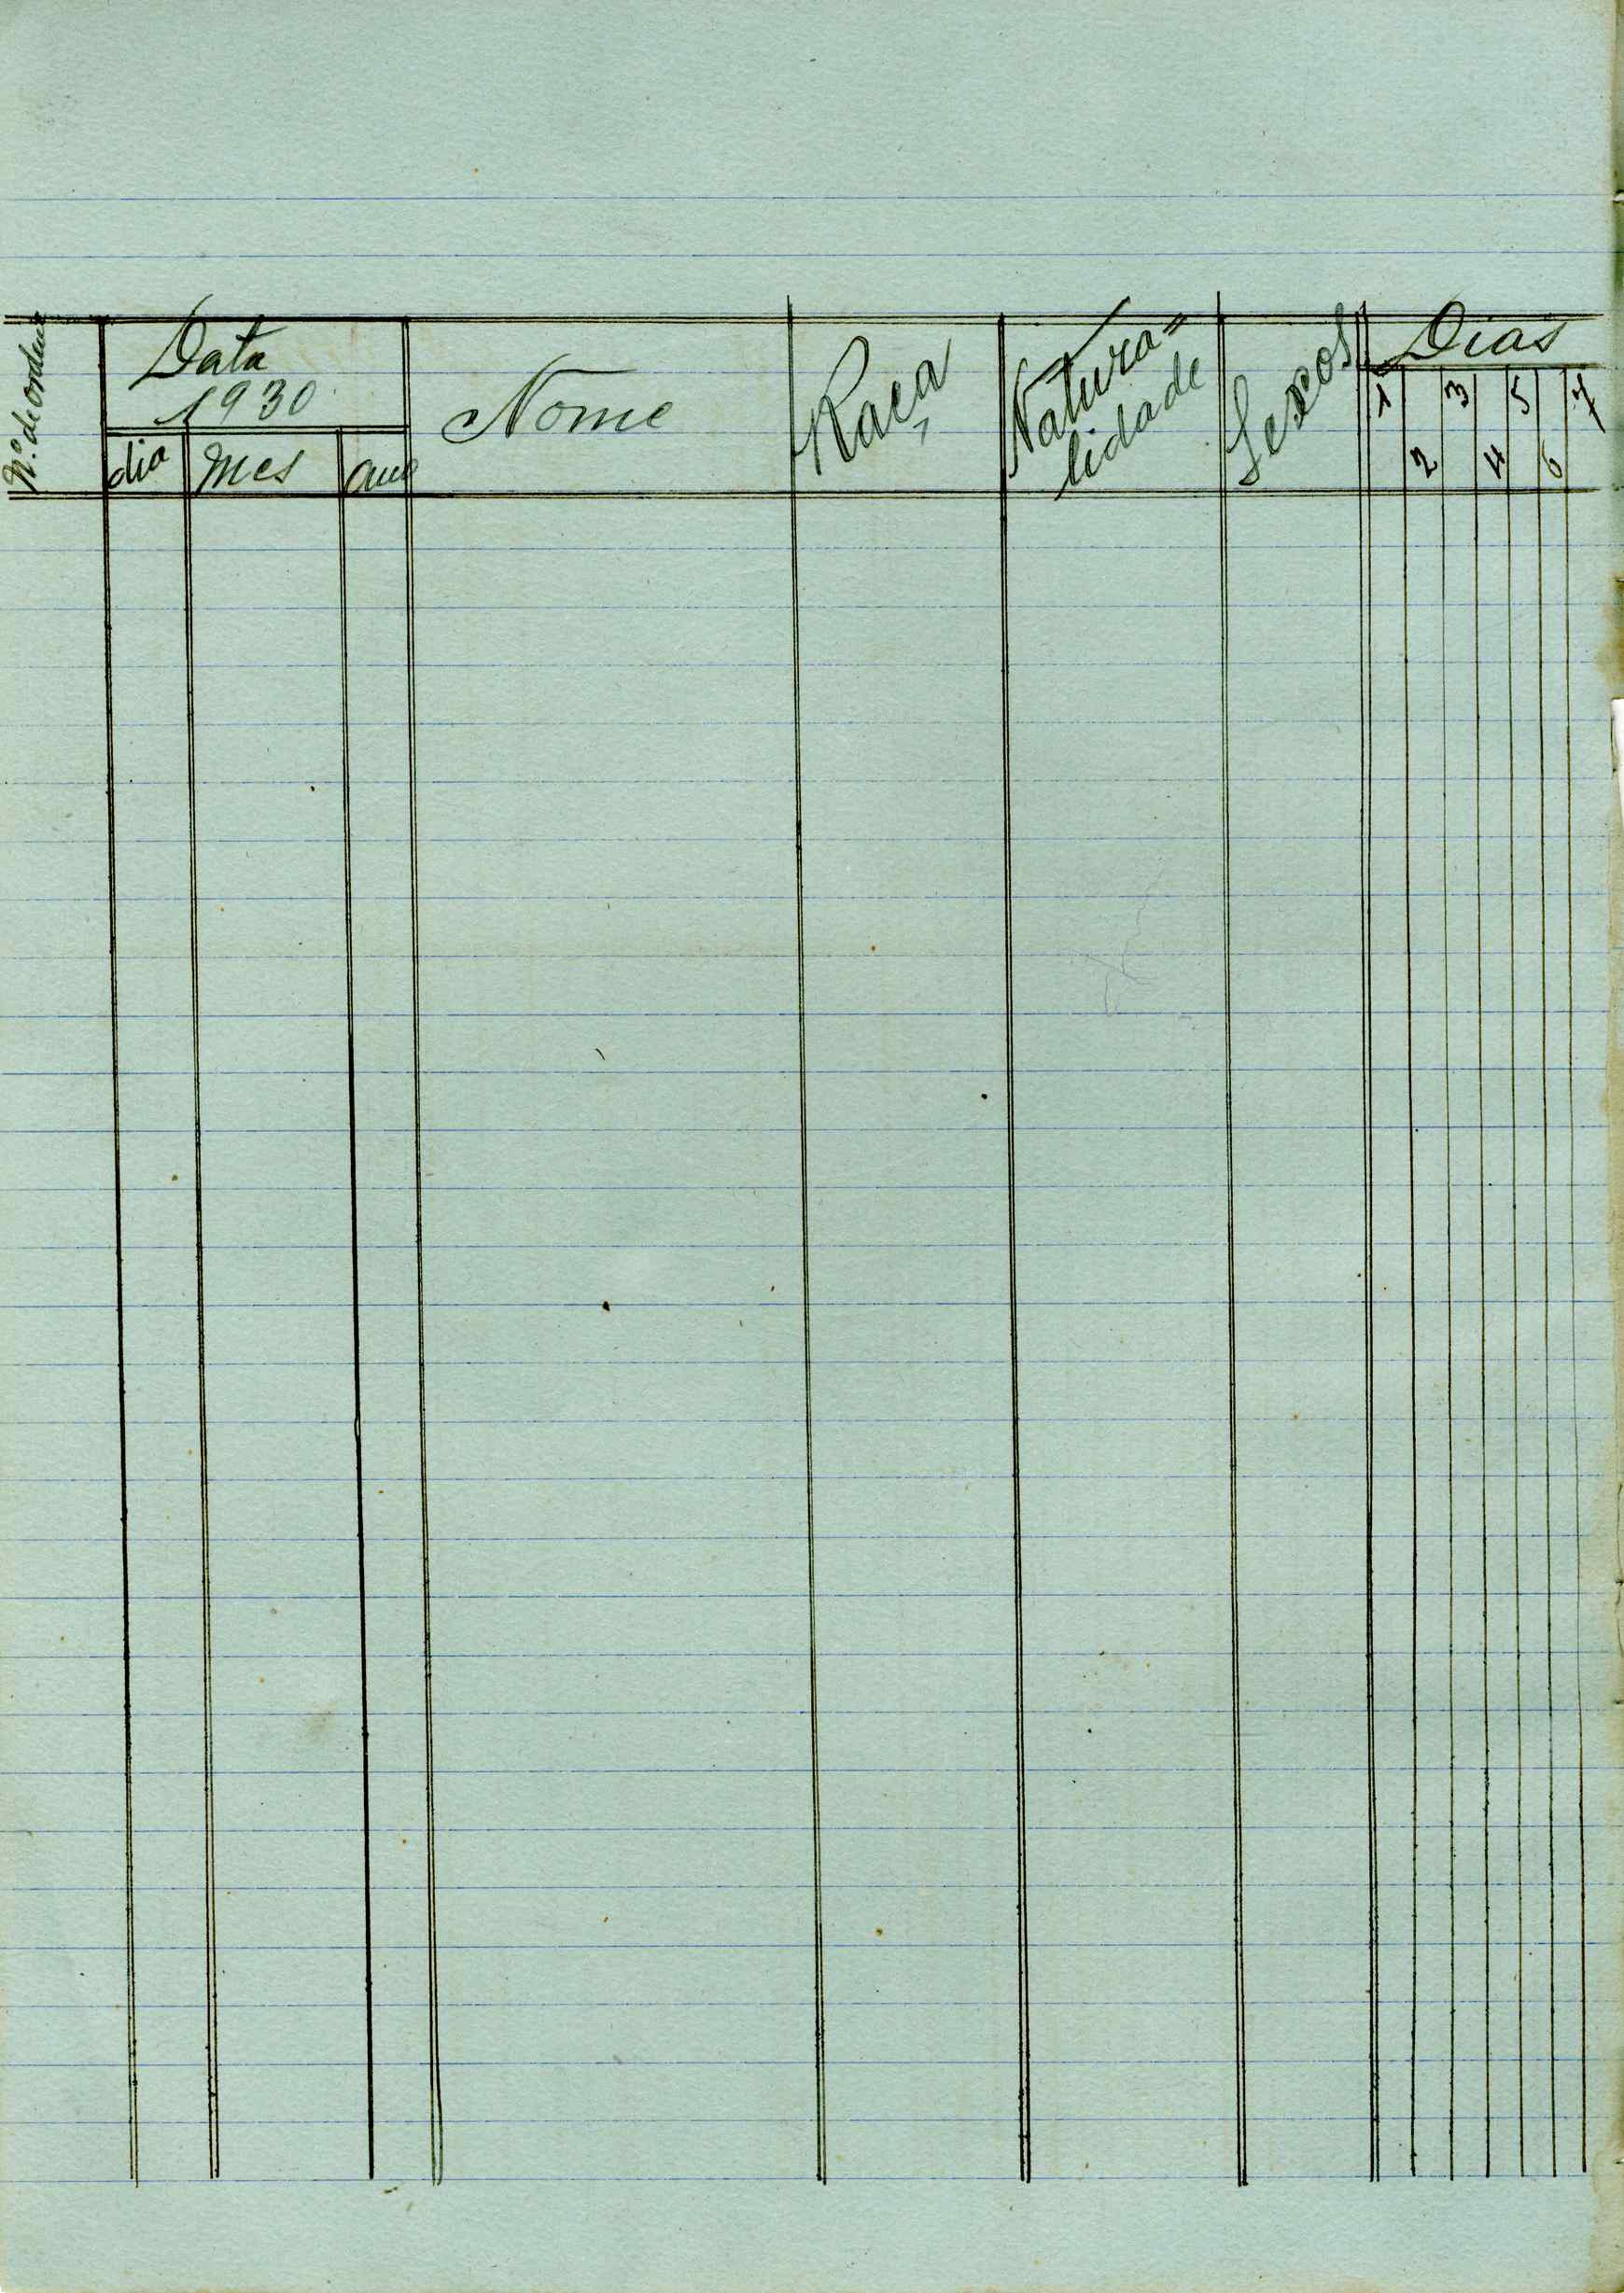 Nº de ordem
Data
1930
dia mes ano
Nome
Raça
Natura=
lidade
Sexos
Dias
1 2 3 4 5 6 7